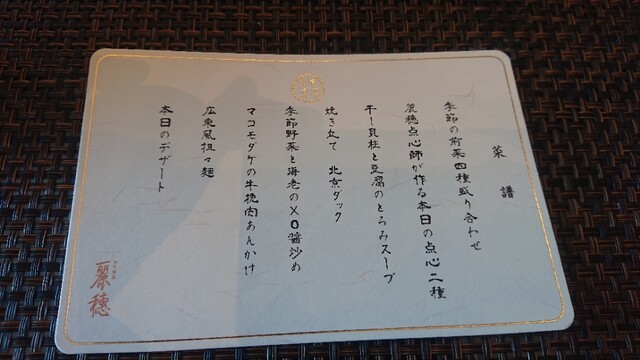 菜譜
季節の前菜四種盛り合わせ
麗穂点心師が作る本日の点心二種
干し貝柱と豆腐のとろみスープ
焼き立て 北京ダック
季節野菜と海老のXO醤炒め
マコモダケの牛挽肉あんかけ
広東風担々麺
本日のデザート
麗穂